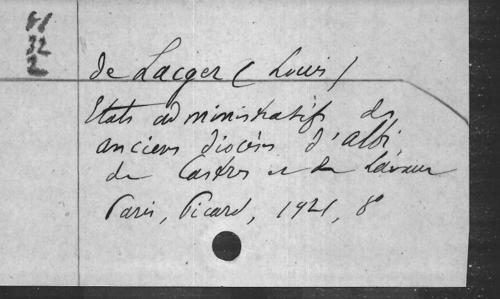 91
32
2
de Lacger (Louis)
Etats administratifs des
anciens diocèses d'albi,
de Castres et de Lavaur
Paris, Picard, 1921, 8°